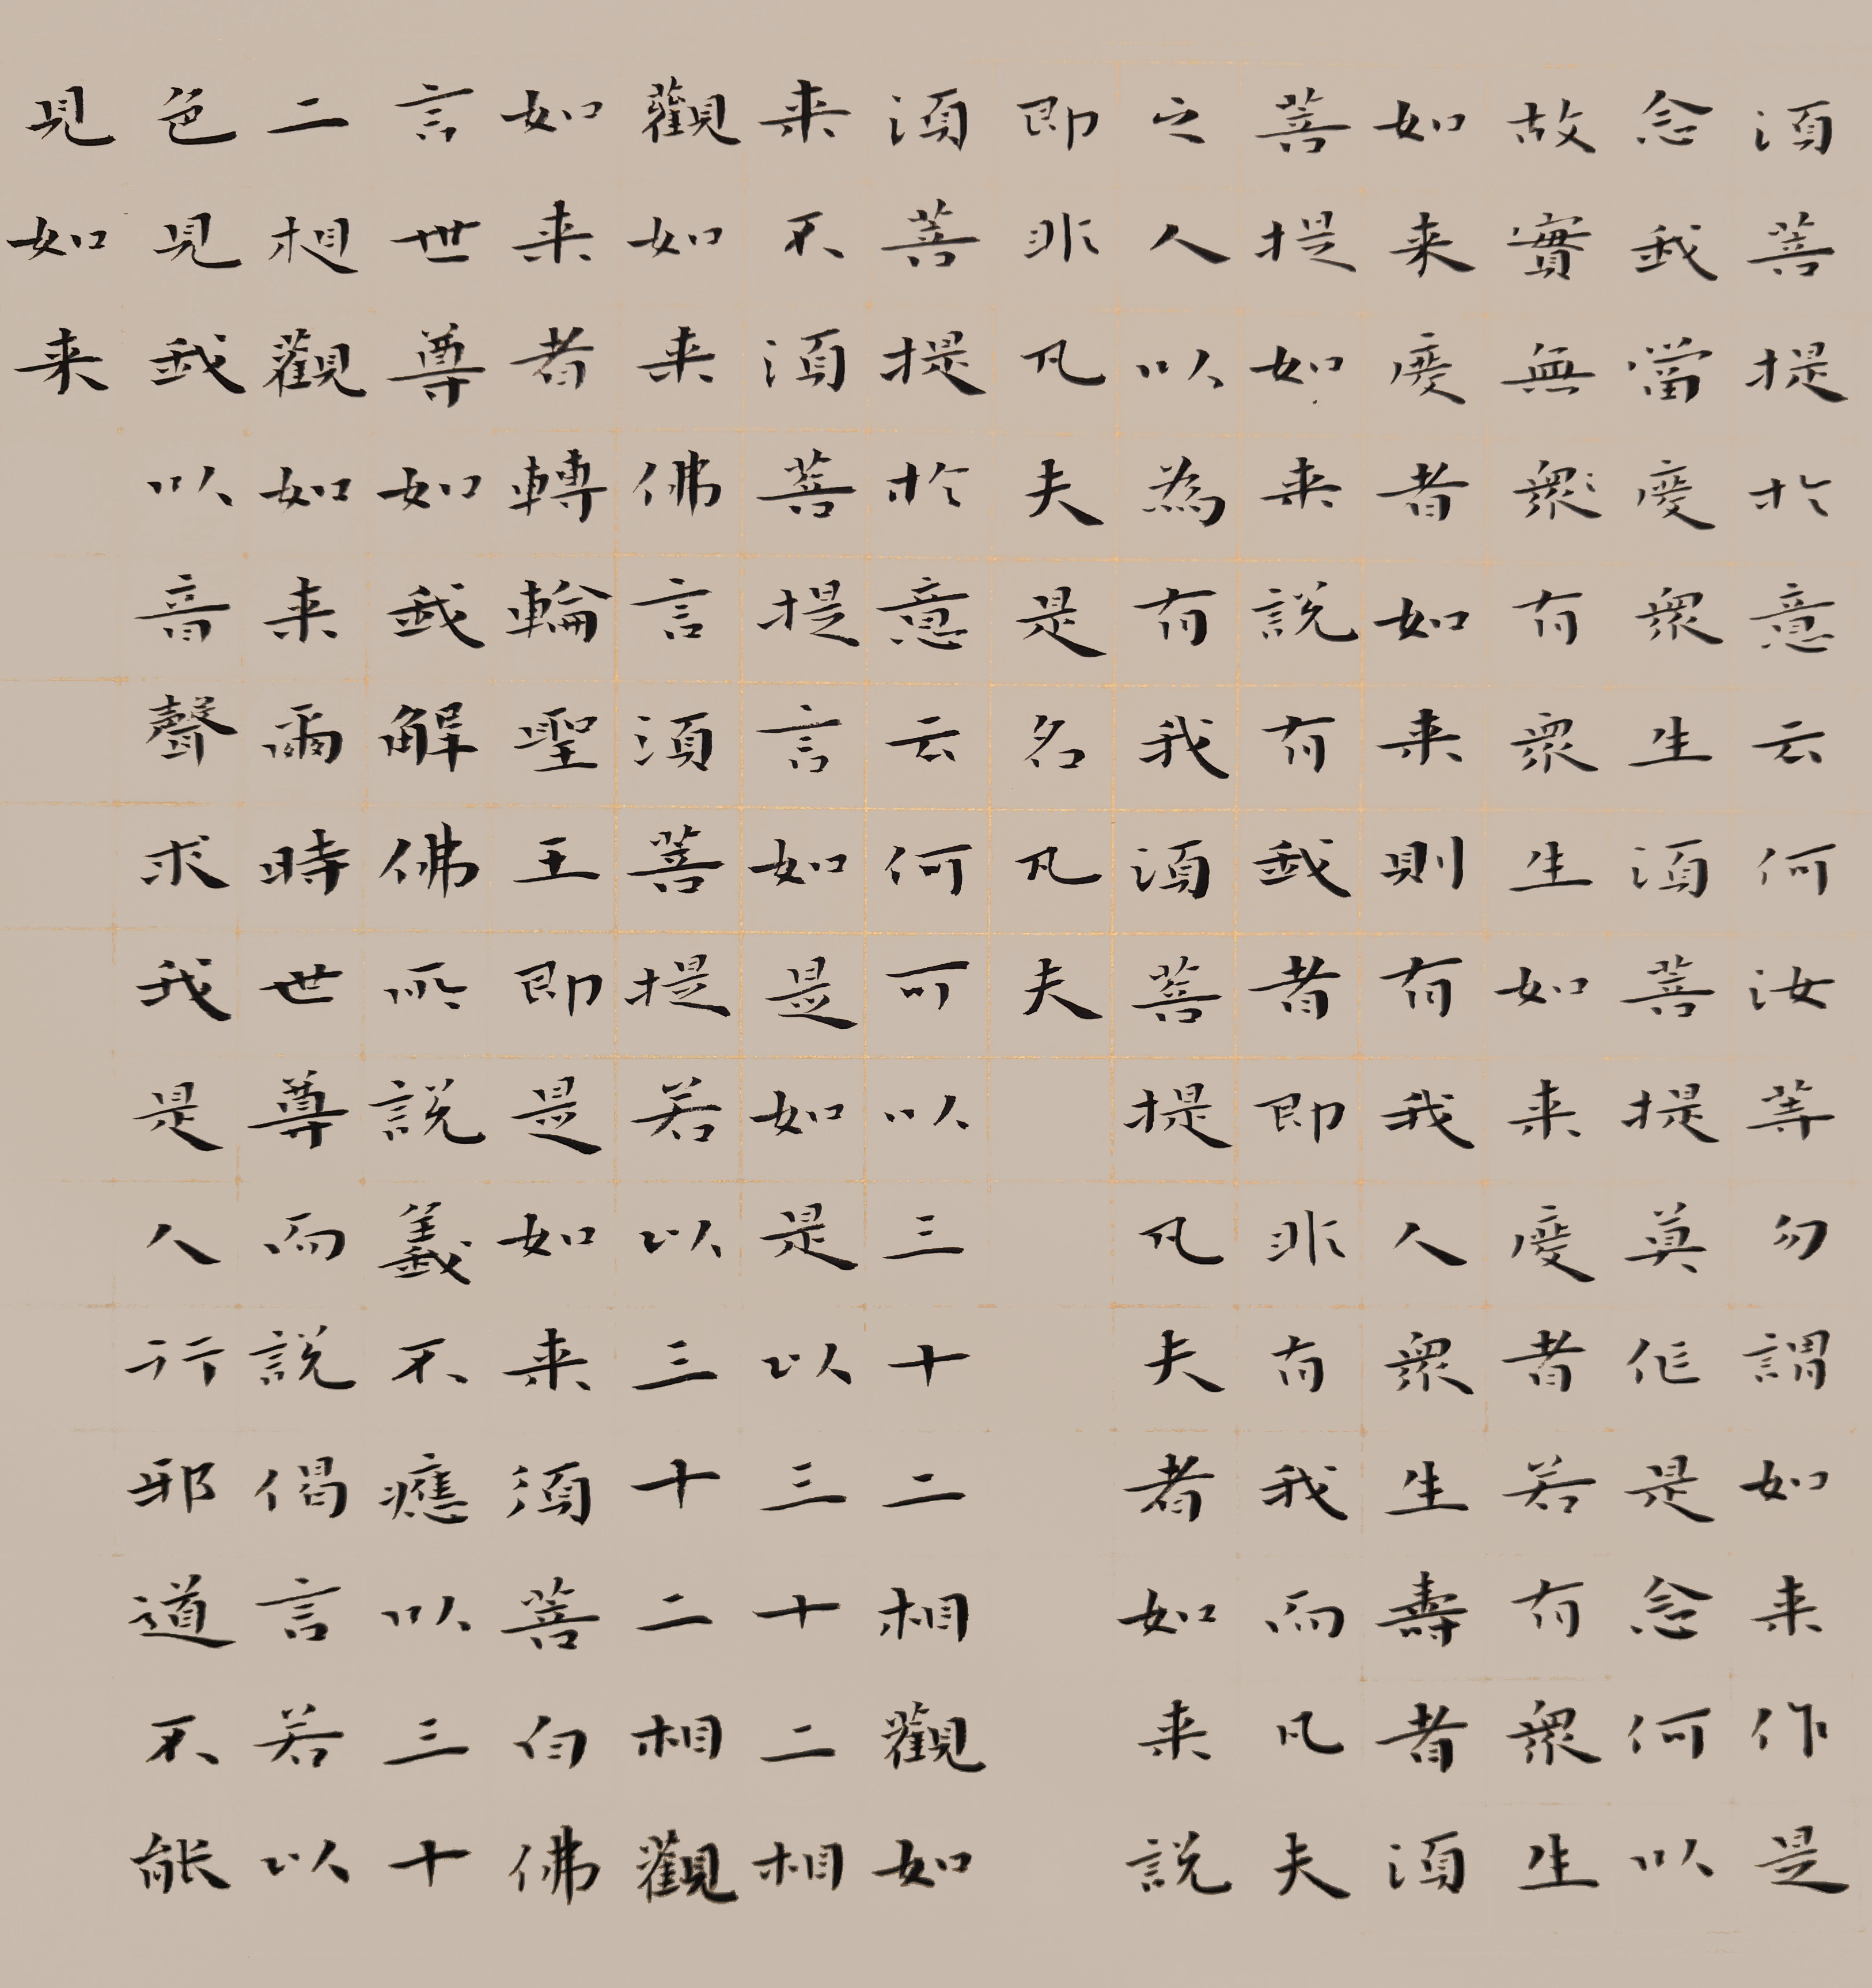 須菩提於意云何汝等勿謂如来作是
念我當度衆生須菩提莫作是念何以
故實無衆有衆生如来度者若有衆生
如来度者如来則有我人衆生壽者須
菩提如来說有我者即非有我而凡夫
之人以為有我須菩提凡夫者如来說
即非凡夫是名凡夫
須菩提於意云何可以三十二相觀如
来不須菩提言如是如是以三十二相
觀如来佛言須菩提若以三十二相觀
如来者轉輪聖王即是如来須菩白佛
言世尊如我解佛所說義不應以三十
二想觀如来爾時世尊而說偈言若以
色見我以音聲求我是人行邪道不能
見如来